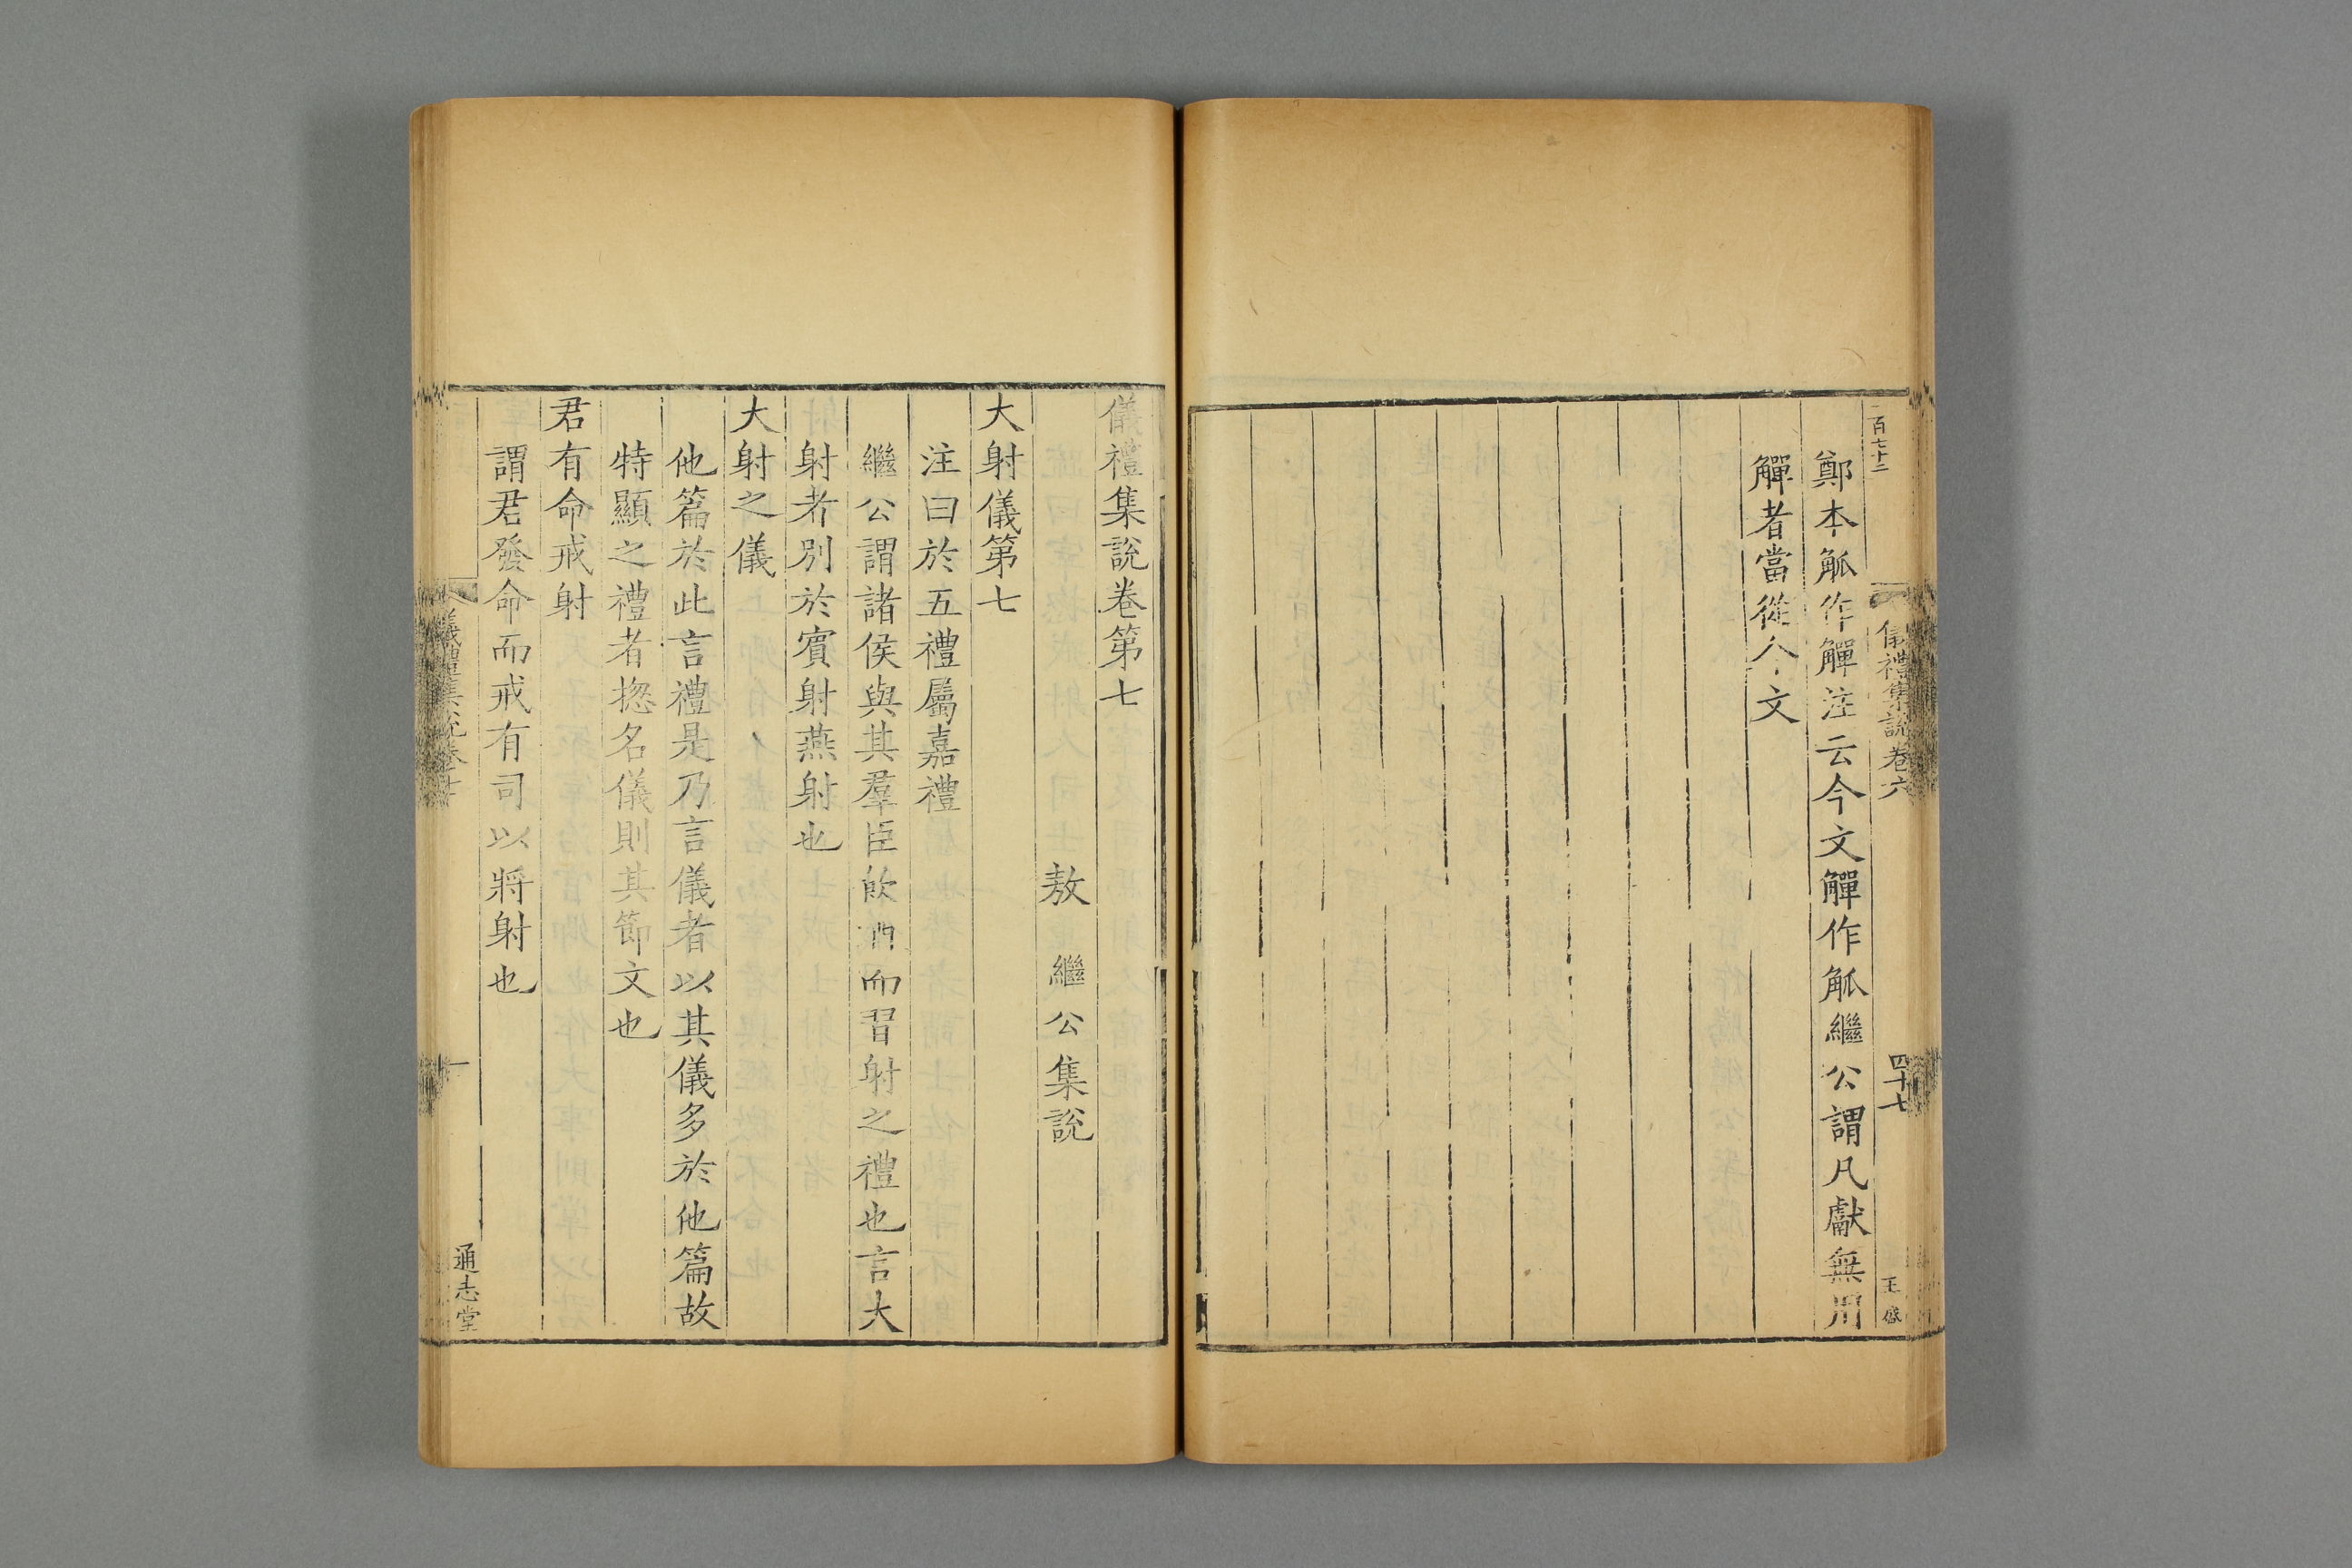 百七十二
儀禮集說卷六
四十七
鄭本觚作觶注云今文觶作觚繼公謂凡獻無用
觶者當從今文
儀禮集說卷第七
敖繼公集說
大射儀第七
注曰於五禮屬嘉禮
繼公謂諸侯與其羣臣飲酒而習射之禮也言大
射者別於賓射燕射也
大射之儀
他篇於此言禮是乃言儀者以其儀多於他篇故
特顯之禮者揔名儀則其節文也
君有命戒射
謂君發命而戒有司以將射也
儀禮集說卷七
一
通志堂